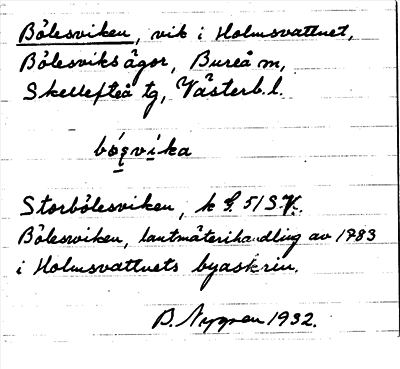 Bölesviken, vik i Holmsvattnet,
Bölesviksågor, Bureå sn,
Skellefteå tg, Västerb. l.
Storbölesviken, k 51 S.V.
Bölesviken, lantmäterihandling av 1783
i Holmsvattnets byaskrin.
B. Nygren 1932.